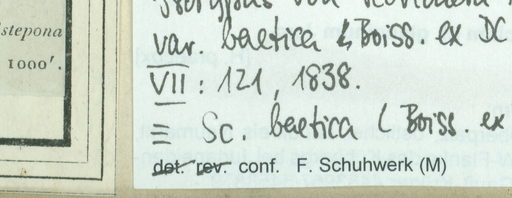 stepona
1000'.
var. baetica (Boiss. ex DC
VII : 121, 1838.
≡ Sc. baetica (Boiss. ex
det. rev. conf. F. Schuhwerk (M)